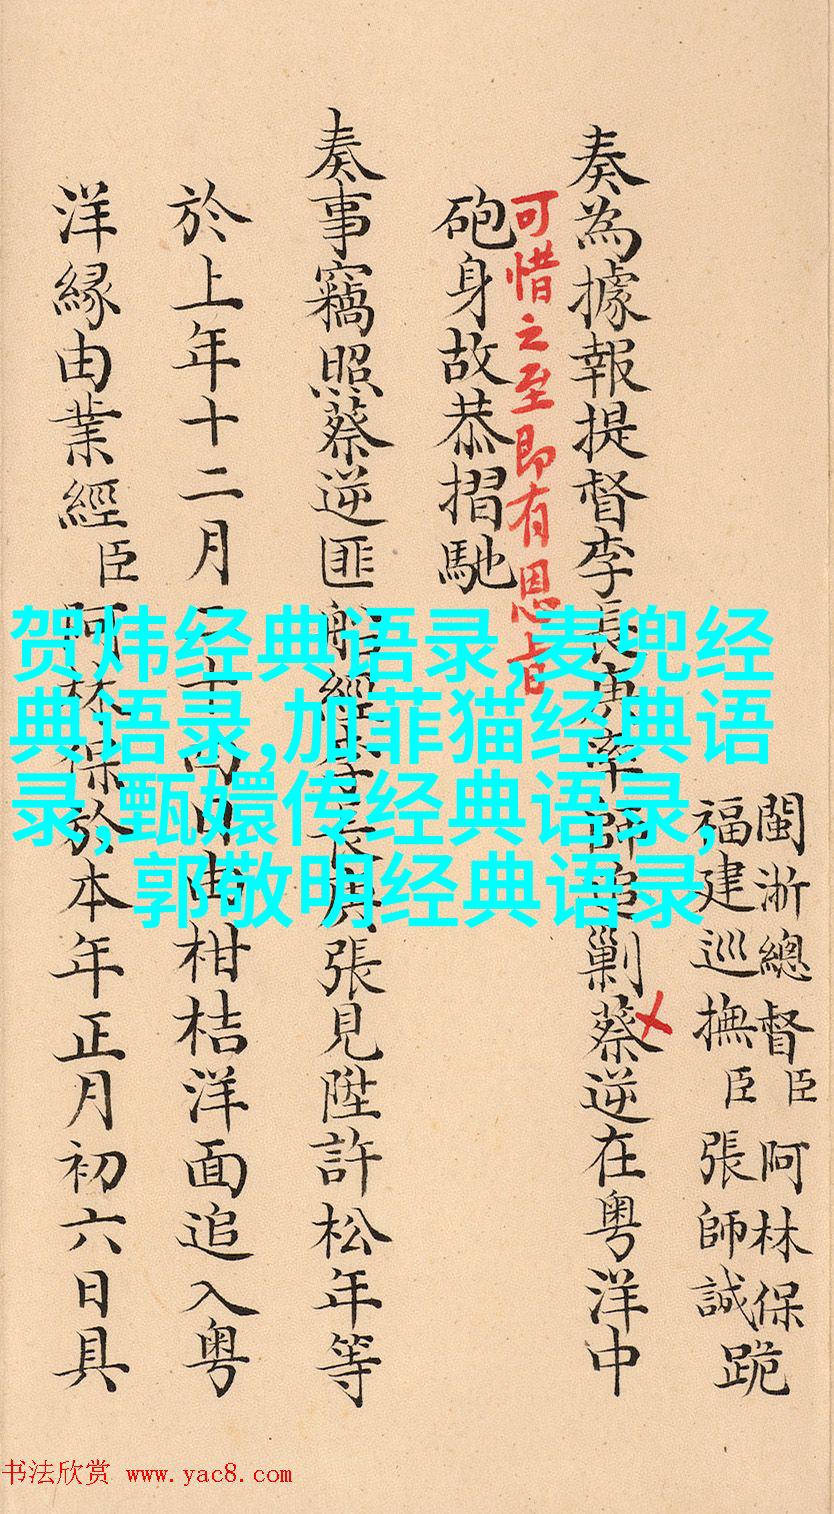 閩浙總督臣阿林保
福建巡撫臣張師誠跪
奏為據報提督李長庚率師追剿蔡逆在粵洋中
可惜之至即有恩旨
砲身故恭摺馳
奏事竊照蔡逆匪船經李長庚張見陞許松年等
於上年十二月柑桔洋面追入粵
洋緣由業經臣阿林保於本年正月初六日具
贺炜经典语录,麦兜经
典语录,加菲猫经典语
录,甄嬛传经典语录,
郭敬明经典语录
书法欣赏 www.yac8.com